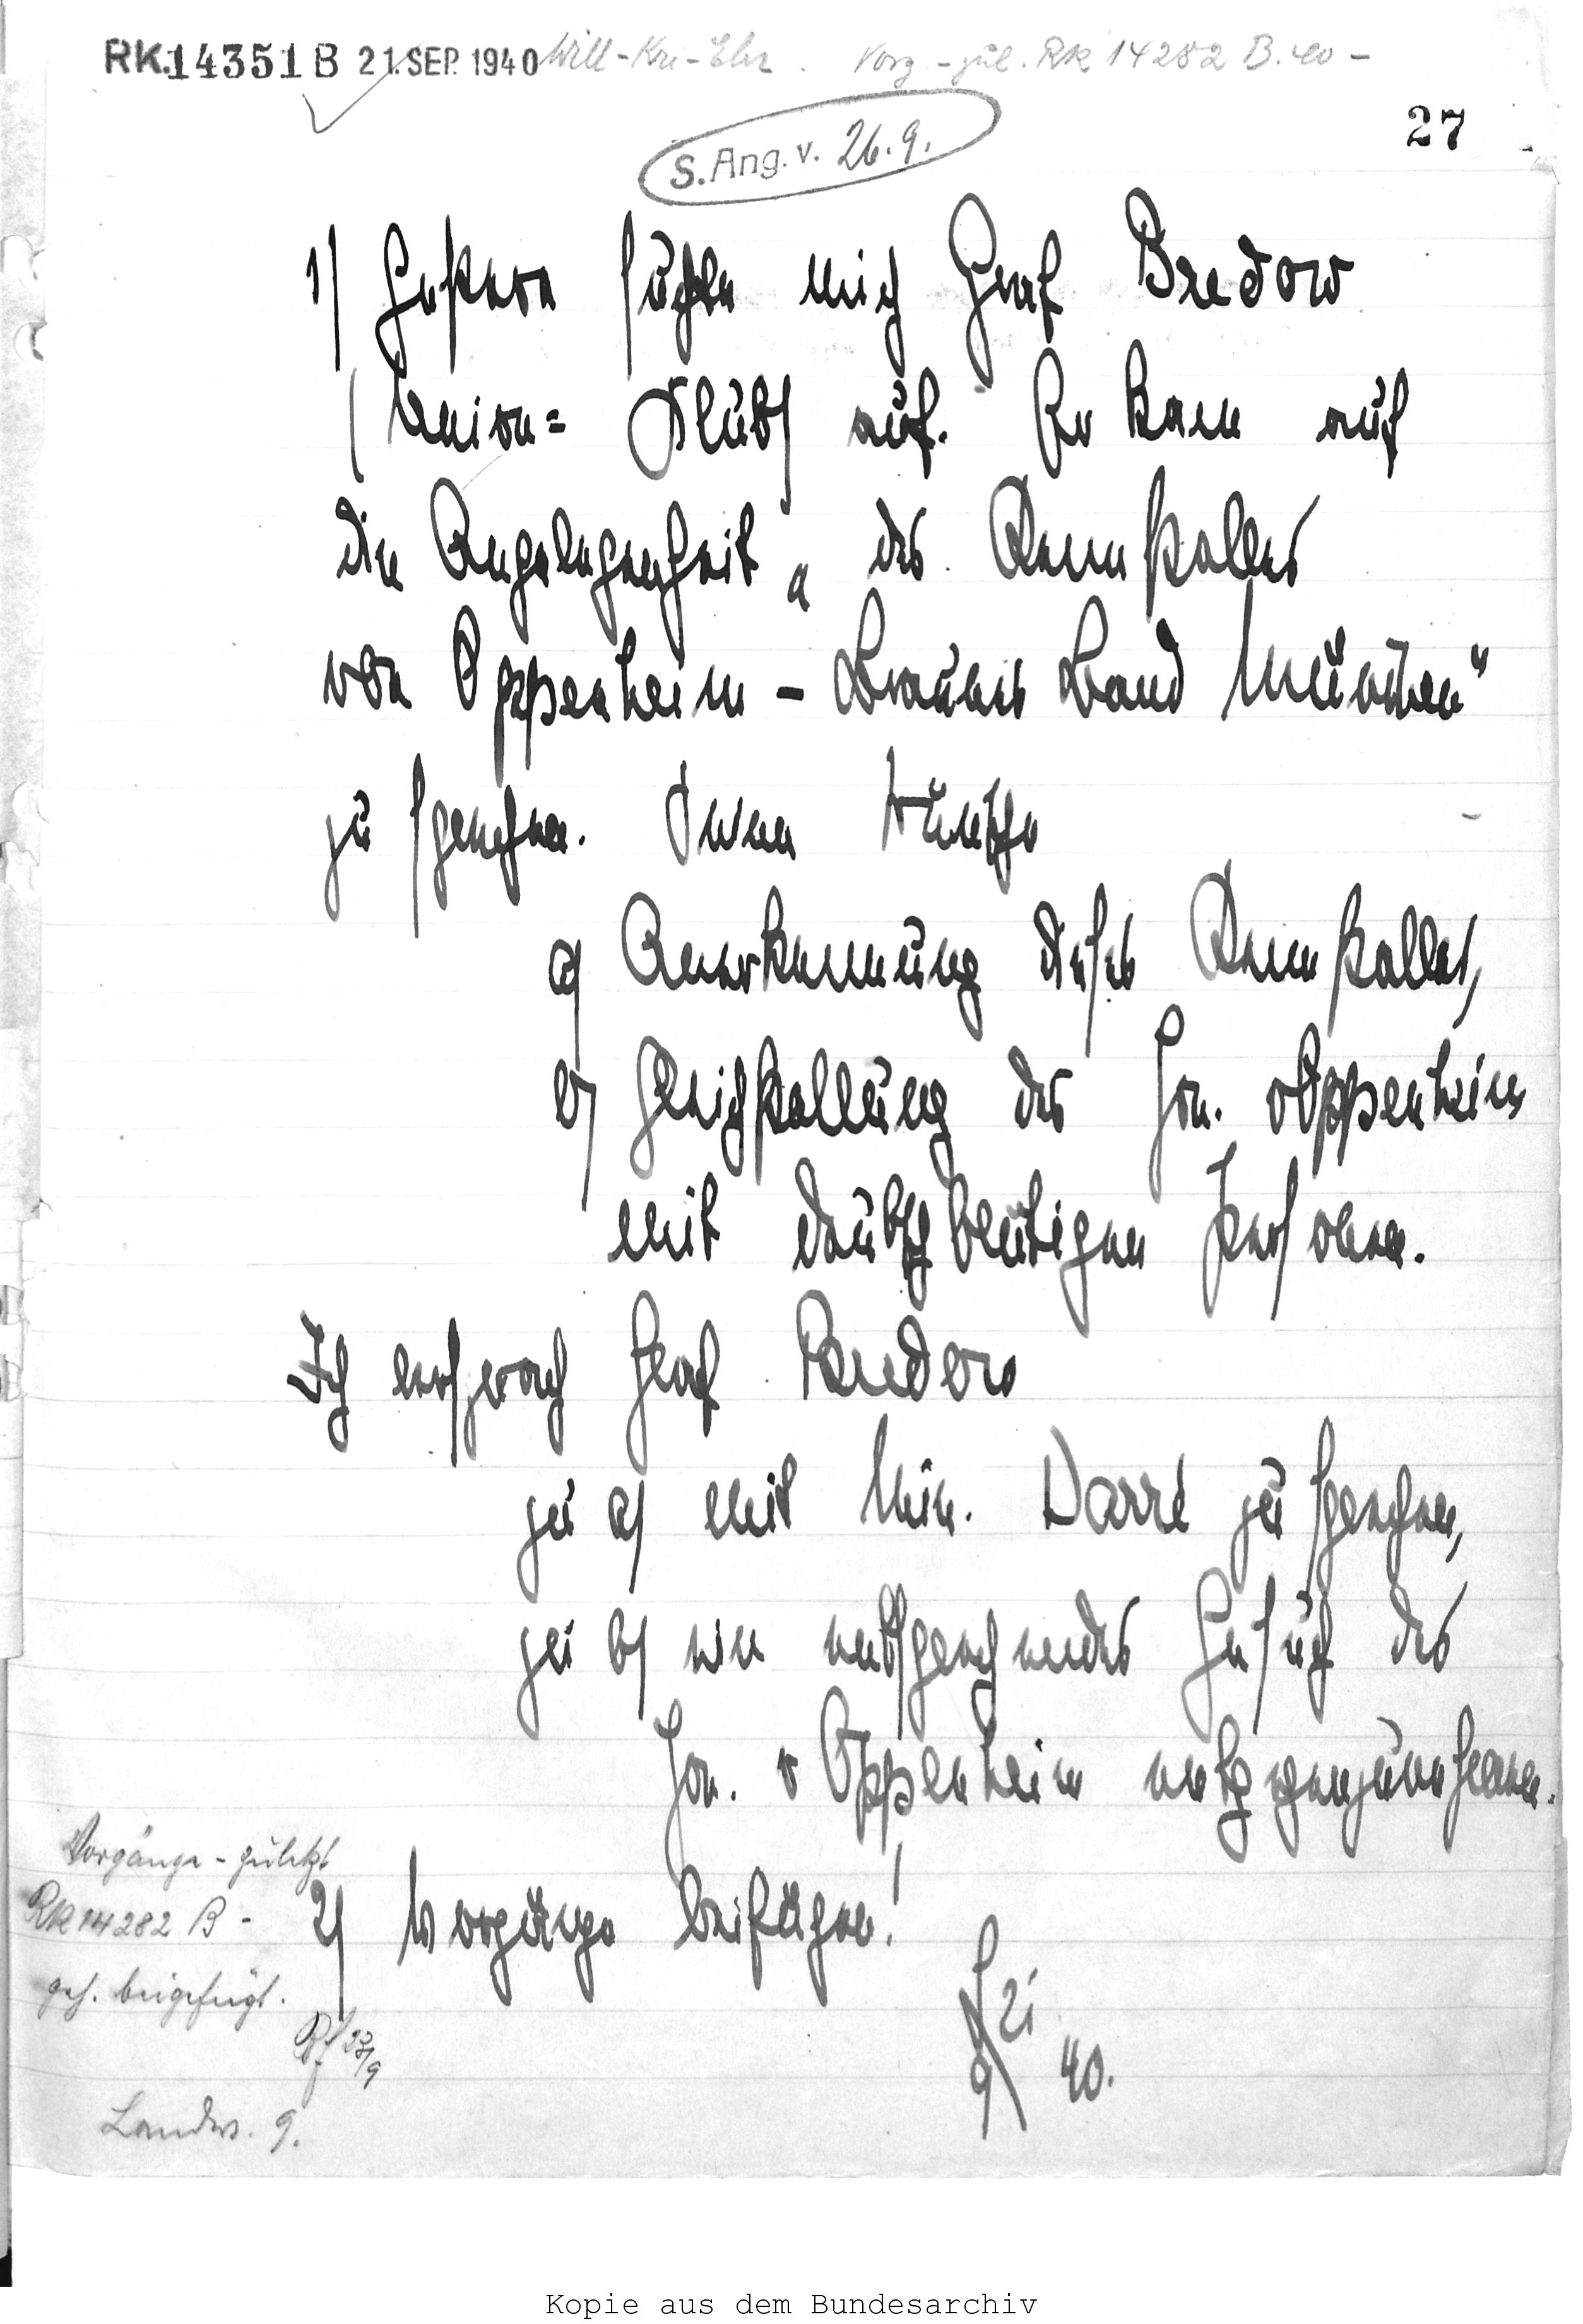 RK.14351 B 21.SEP. 1940 Vorg.-zul. RK 14282 B. 40 -
27
S. Ang. v. 26.9.
1) Gestern suchte mich Graf Bredow
(Union= Klub) auf. Er kam auf
die Angelegenheit „des Rennstalles
von Oppenheim - Braunes Band München“
zu sprechen. Seine Wünsche
a) Anerkennung dieses Rennstalles,
b) Gleichstellung der Frn. v Oppenheim
mit deutschblütigen Personen.
Ich versprach Graf Bredow
zu a) mit Min. Darré zu sprechen,
zu b) ein entsprechendes Gesuch der
Frn. v Oppenheim entgegenzunehmen.
2) Vorgänge beifügen!
21
9 40.
Vorgänge - zuletzt
RK 14282 B -
geh. beigefügt.
23/9
Landw. 9.
Kopie aus dem Bundesarchiv